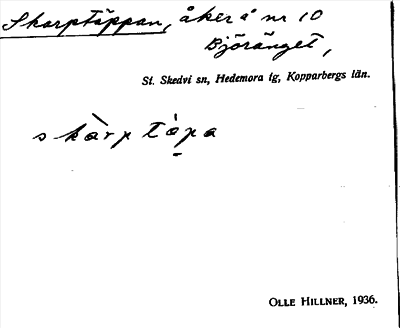 Skarptäppan, åker å nr 10
Björänget,
St. Skedvi sn, Hedemora tg, Kopparbergs län.
skàrptàpa
OLLE HILLNER, 1936.